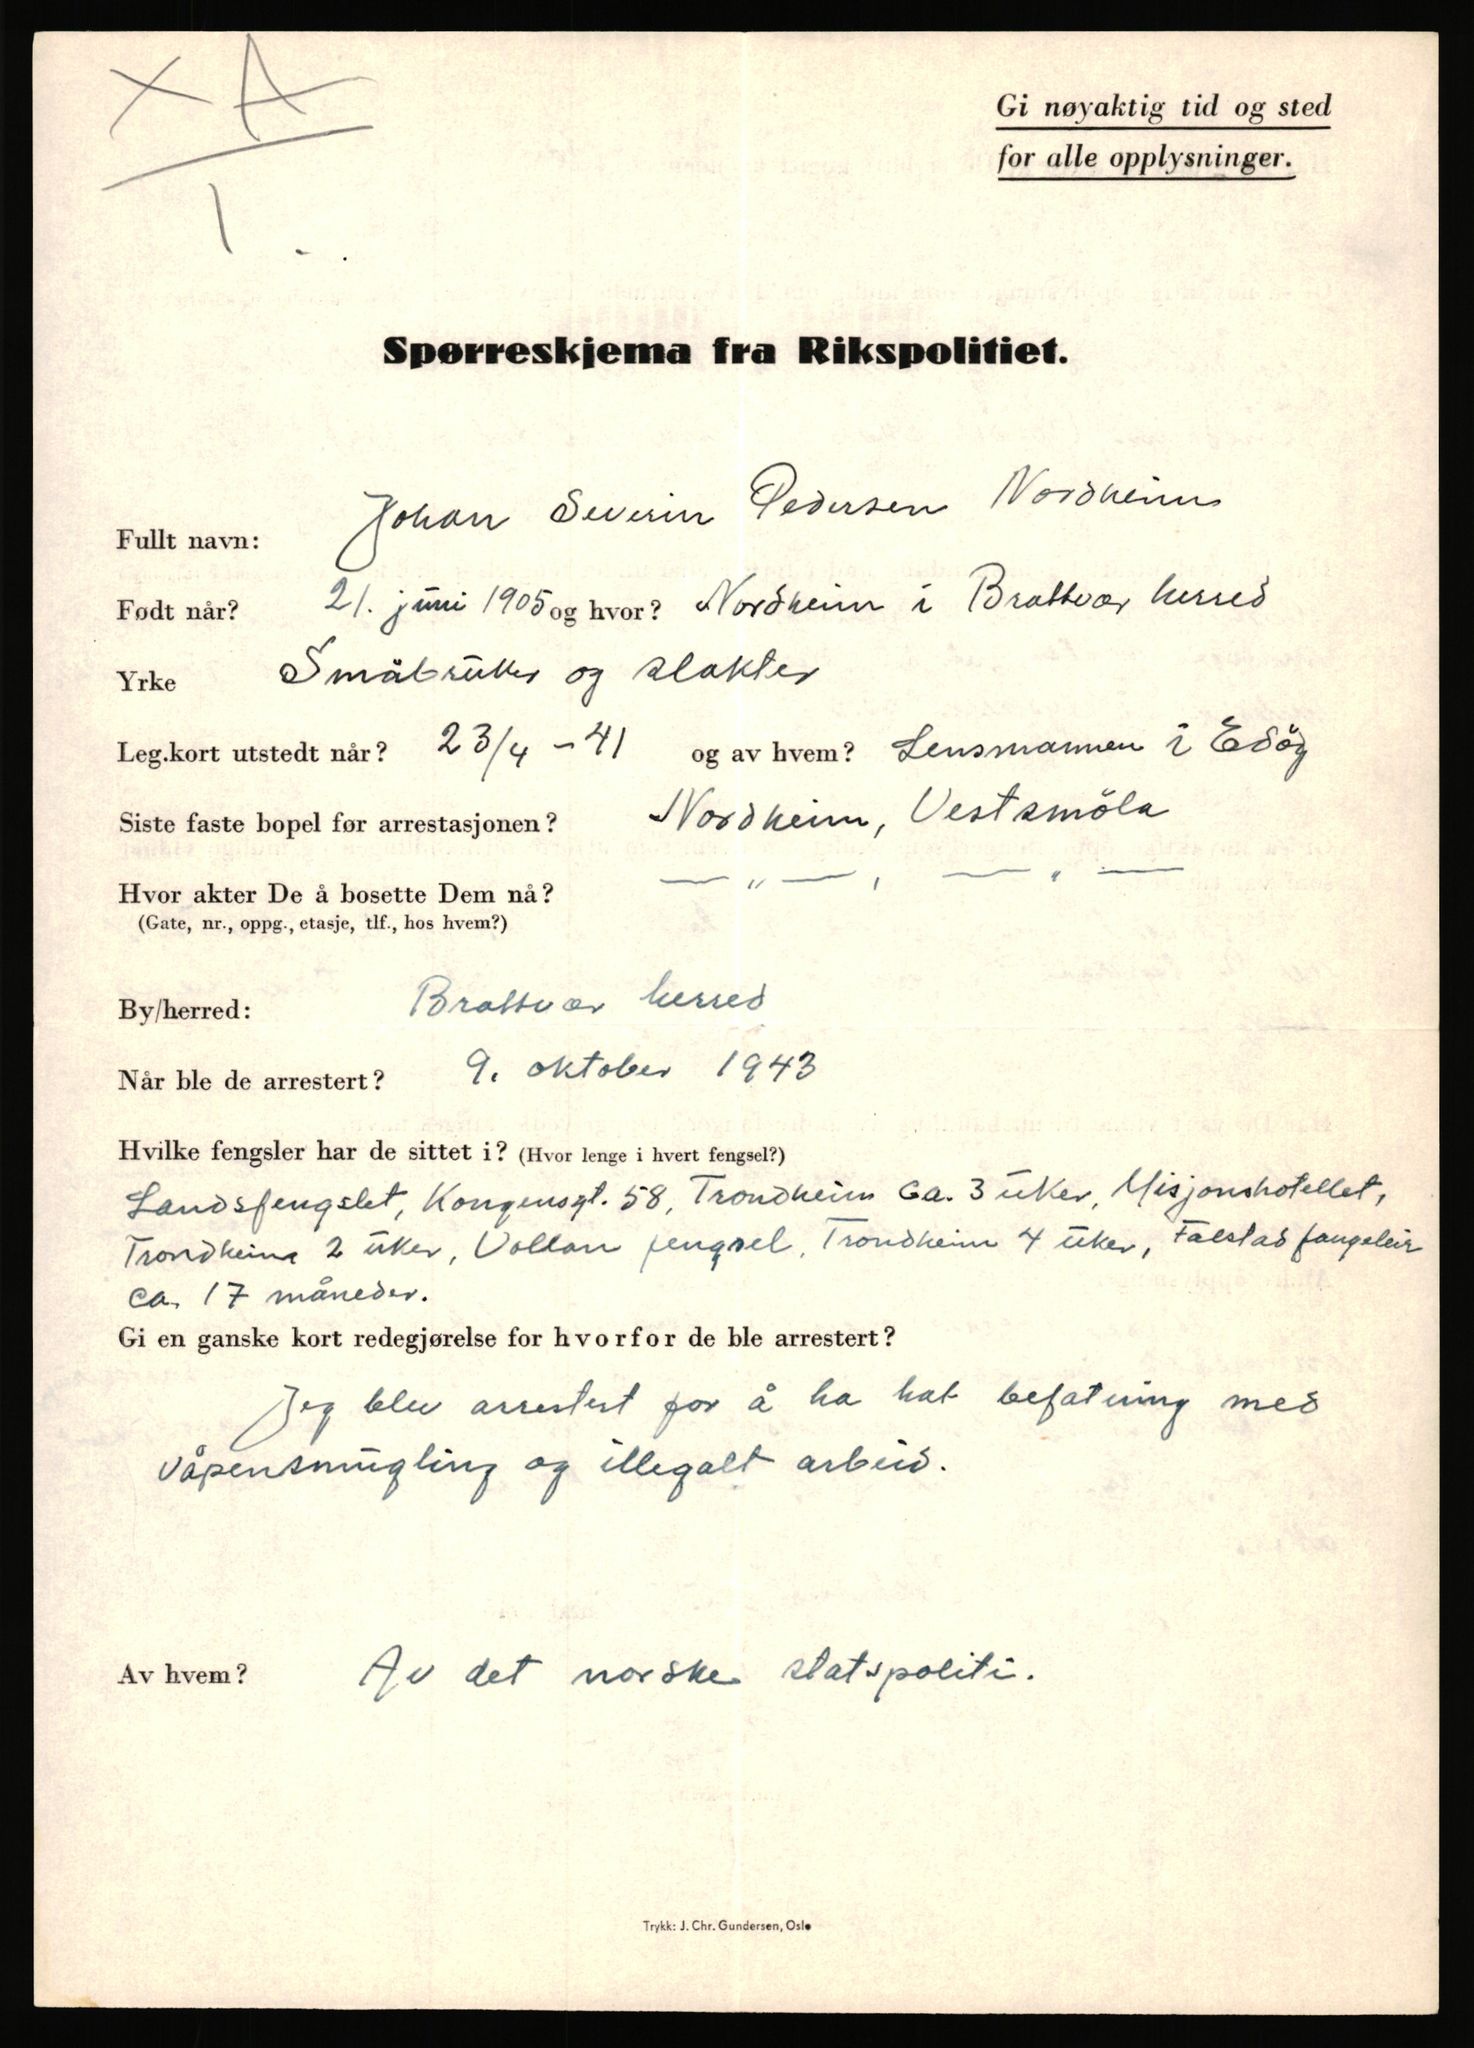 XA
1
Gi nøyaktig tid og sted
for alle opplysninger.
Spørreskjema fra Rikspolitiet.
Fullt navn: Johan Severin Pedersen Nordheim
Født når? 21. juni 1905 og hvor? Nordheim i Brattvær herred
Yrke Småbruker og slakter
Leg.kort utstedt når? 23/4 – 41 og av hvem? Lensmannen i Edöy
Siste faste bopel før arrestasjonen? Nordheim, Vestsmöla
Hvor akter De å bosette Dem nå? — „ — , — „ —
(Gate, nr., oppg., etasje, tlf., hos hvem?)
By/herred: Brattvær herred
Når ble de arrestert? 9. oktober 1943
Hvilke fengsler har de sittet i? (Hvor lenge i hvert fengsel?)
Landsfengslet, Kongensgt. 58, Trondheim ca. 3 uker, Misjonshotellet,
Trondheim 2 uker, Vollan fengsel, Trondheim 4 uker, Falstad fangeleir
ca. 17 måneder.
Gi en ganske kort redegjørelse for hvorfor de ble arrestert?
Jeg blev arrestert for å ha hat befatning med
våpensmugling og illegalt arbeid.
Av hvem? Av det norske statspoliti.
Trykk: J. Chr. Gundersen, Oslo